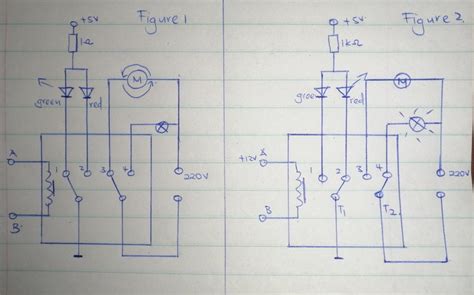 Figure 1
+5V
1Ω
green
red
M
A
1
2
3
4
220V
B
Figure 2
+5V
1kΩ
green
red
M
+12V
A
1
2
3
4
220V
B
T1
T2